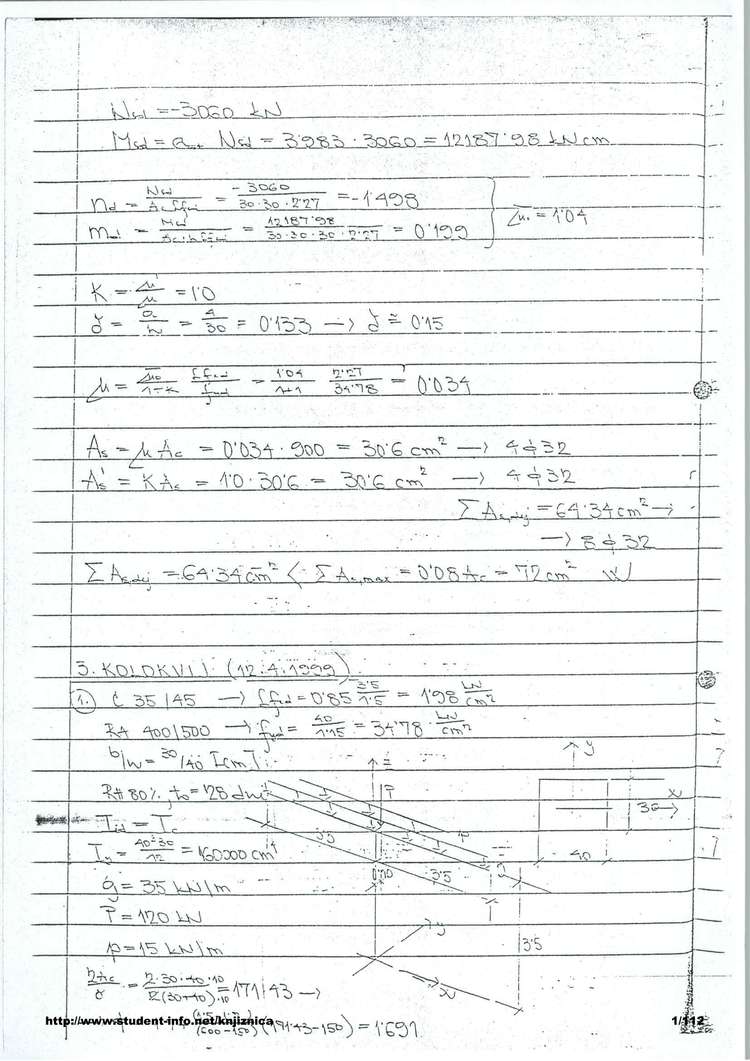 N_sd = -3060 kN
M_sd = a · N_sd = 3'983 · 3060 = 12187'98 kNcm
n_d = N_sd / (A_c f_cd) = -3060 / (30·30·2'27) = -1'498
m_d = 12187'98 / (30·30·30·2'27) = 0'199 } μ_0 = 1'04
K = μ' / μ = 1'0
δ = a / h = 4 / 30 = 0'133 → δ ≅ 0'15
μ = μ_0 / (1+K) · f_cd / f_yd = 1'04 / (1+1) · 2'27 / 34'78 = 0'034
A_s = μ A_c = 0'034 · 900 = 30'6 cm² → 4 ϕ 32
A_s' = K A_s = 1'0 · 30'6 = 30'6 cm² → 4 ϕ 32
Σ A_s,dej = 64'34 cm² →
→ 8 ϕ 32
Σ A_s,dej = 64'34 cm² < Σ A_s,max = 0'08 A_c = 72 cm²
3. KOLOKVIJ (12.4.1999)
1. C 35/45 → f_cd = 0'85 3'5 / 1'5 = 1'98 kN/cm²
RA 400/500 → f_yd = 40 / 1'15 = 34'78 kN/cm²
b/h = 30/40 [cm]
RH 80%, t_0 = 28 dni
I_id = I_c
I_y = 40³·30 / 12 = 160000 cm⁴
g = 35 kN/m
P = 120 kN
p = 15 kN/m
z
P
p
y
x
3'5
3'5
3'5
y
x
30
40
2A_c / u = 2·30·40·10 / 2(30+40)·10 = 171'43 →
(171'43-150) = 1'691
http://www.student-info.net/knjiznica
1/112